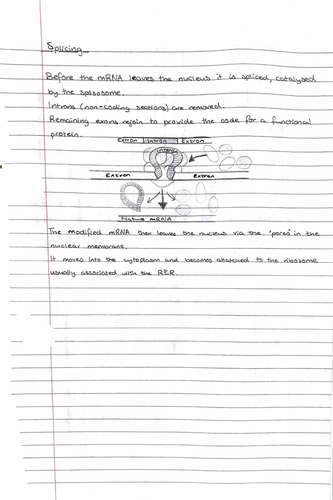 Splicing
Before the mRNA leaves the nucleus it is spliced, catalysed
by the spliosome.
Introns (non-coding sections) are removed.
Remaining exons rejoin to provide the code for a functional
protein.
Extron Intron Extron
Intron
Extron Extron
Mature mRNA
The modified mRNA then leaves the nucleus via the 'pores' in the
nuclear membrane.
It moves into the cytoplasm and becomes attatched to the ribosome
usually associated with the RER.